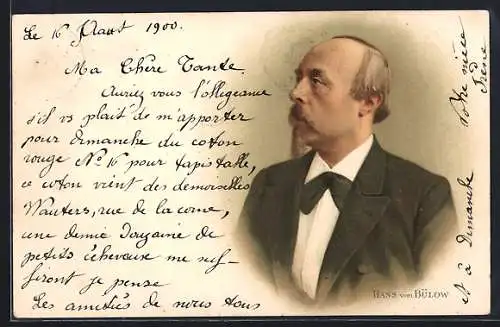 Le 16 Août 1900.
Ma Chère Tante.
Auriez vous l'obligeance
s'il vs plait de m'apporter
pour dimanche du coton
rouge No 16 pour tapis table,
ce coton vient des demoiselles
Wauters, rue de la corne,
une demie douzaine de
petits écheveaux me suf-
firont je pense
Les amitiés de nous tous
et à Dimanche
Votre nièce
Irène
HANS VON BÜLOW